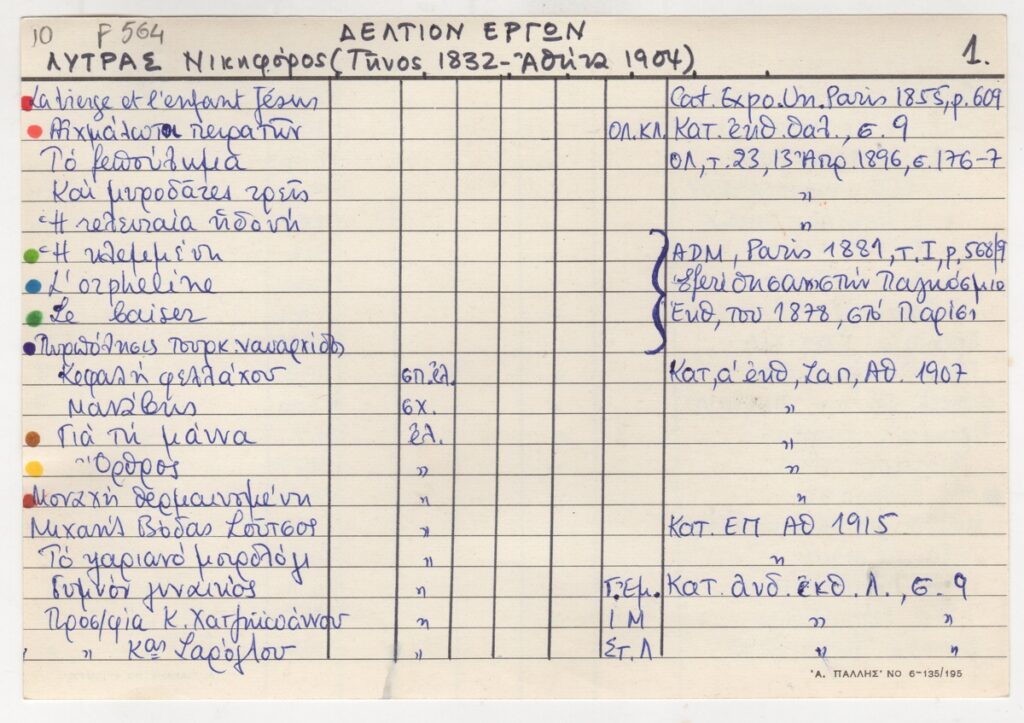 10 F 564 ΔΕΛΤΙΟΝ ΕΡΓΩΝ
ΛΥΤΡΑΣ Νικηφόρος (Τήνος 1832-Ἀθήνα 1904) 1.
La Vierge et l'enfant Jésus Cat. Expo. Un. Paris 1855, p. 609
Αἰχμάλωτοι πειρατῶν ΟΛ.ΚΛ. Κατ. ἐκθ. θαλ., σ. 9
Τό ξεπούλημα ΟΛ, τ. 23, 13 Ἀπρ. 1896, σ. 176-7
Καί μυροδᾶτες τρεῖς "
Ἡ τελευταία ἡδονή "
Ἡ κλεμμένη ADM, Paris 1881, τ. I, p. 568/9
L'orpheline στήν Παγκόσμιο
Le baiser Ἐκθ, του 1878, στό Παρίσι
Πυρπόλησις τουρκ. ναυαρχίδος
Κεφαλή φελλάχου σπ. ἐλ. Κατ, α' ἐκθ, Ζαπ, Αθ. 1907
Μανάβης σχ. "
Γιά τή μάννα ἐλ. "
Ὄρθρος " "
Μοναχή θερμαινομένη " "
Μιχαήλ Βόδας Σοῦτσος " Κατ. ΕΠ Αθ 1915
Τό ψαριανό μοιρολόγι " "
Γυμνόν γυναικός " Γ. Ἐμ. Κατ. ἀνδ. ἐκθ. Λ., σ. 9
Προσ/φία Κ. Χατζηιωάννου " Ι Μ " "
" Κας Σαρόγλου " Στ. Λ " "
'Α. ΠΑΛΛΗΣ' ΝΟ 6-135/195